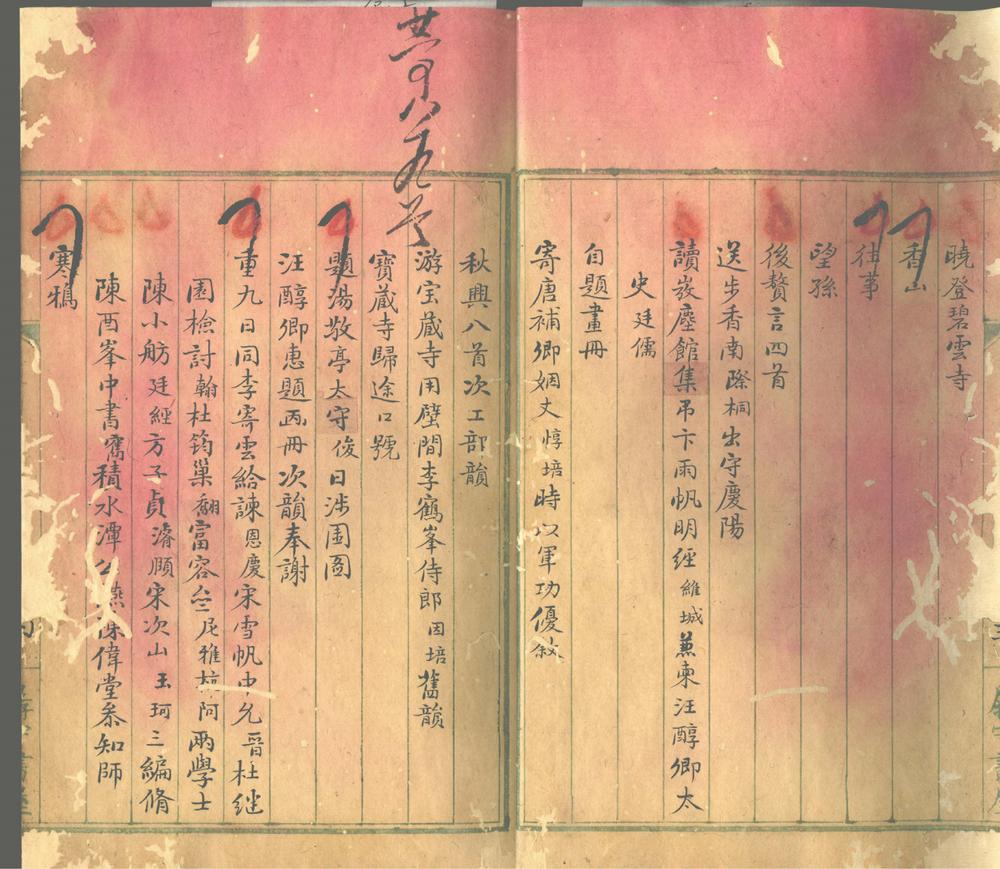 曉登碧雲寺
香山
往事
望孫
後贅言四首
送步香南際桐出守慶陽
讀發塵館集弔卞雨帆明經維城兼柬汪醇卿太
史廷儒
自題畫冊
寄唐補卿姻丈惇培時以軍功優敘
秋興八首次工部韻
游宝蔵寺用壁間李鶴峯侍郎因培舊韻
寶蔵寺歸途口號
題湯敬亭太守俊日涉園圖
汪醇卿惠題画冊次韻奉謝
重九日同李寄雲給諫恩慶宋雪帆中允晋杜継
園檢討翰杜筠巢翻富容尼雅杭阿兩學士
陳小舫廷經方子貞濬頤宋次山玉珂三編脩
陳酉峯中書寯積水潭偉堂叅知師
寒鴉